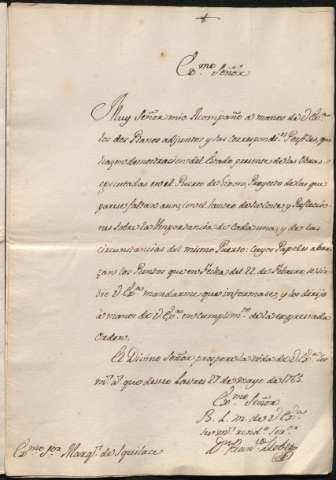 Ex.mo Señor
Muy Señor mio Acompaño à manos de V.Ex.a
los dos Planos adjuntos y sus correspond.tes Perfiles, que
hago demonstracion del Estado presente de las Obras
executadas en el Puerto de Proyecto de las que
parece faltan aun, con el tanteo de su costo, y Reflexiones
sobre la Importancia de Cada una, y de las
circunstancias del mismo Puerto: Cuyos Papeles abrazan
los Puntos que en fecha del 22 de Febrero, se sirvió
V.Ex.a mandarme, que informase, y los dirijo
à manos de V.Ex.a en cumplim.to de la expresada
orden.
El Divino Señor prospere la vida de V.Ex.a los
m.s a.s que deseo 27 de mayo de 1763.
Ex.mo Señor
B. L. M. de V.Ex.a
su mas rend.o Ser.or
D.n
Ex.mo S.or Marq.s de Squilace